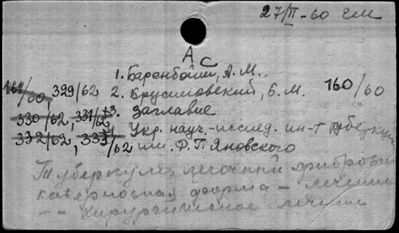 27/II-60 гм
АС
1. Баренбойм, А. М.
161/60, 329/62 2. Крусимовский, Б. М. 160/60
330/62, 331/62 3. Заглавие
332/62, 333/62 Укр. науч.-исслед. ин-т туберкул.
им. Ф. Г. Яновского
Туберкулез легочный фиброзно
кавернозная форма - лечение
- - хирургическое лечение